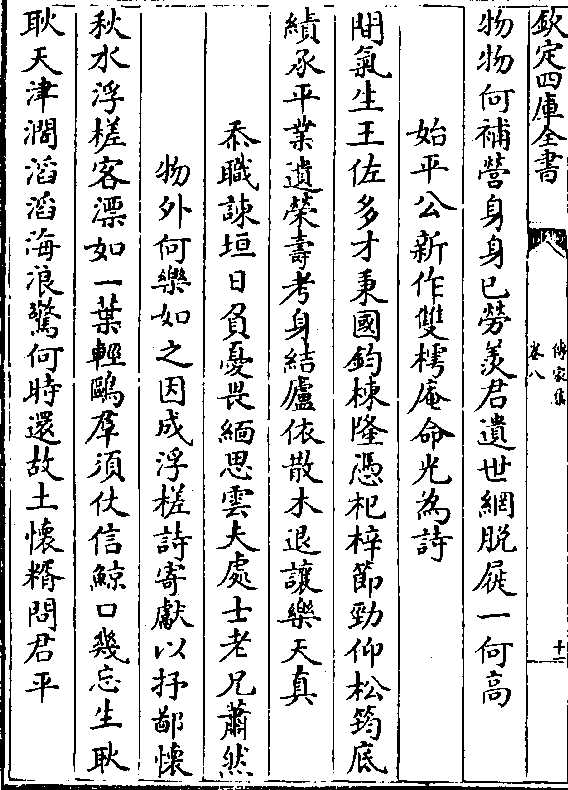 欽定四庫全書
傳家集
卷八
十二
物物何補營身身已勞羨君遺世網脱屣一何高
始平公新作雙樗庵命光為詩
間氣生王佐多才秉國鈞棟隆憑杞梓節勁仰松筠底
績承平業遺榮壽考身結廬依散木退讓樂天真
忝職諫垣日負憂畏緬思雲夫處士老兄蕭然
物外何樂如之因成浮槎詩寄獻以抒鄙懷
秋水浮槎客漂如一葉輕鷗羣須仗信鯨口幾忘生耿
耿天津濶滔滔海浪驚何時還故土懷糈問君平